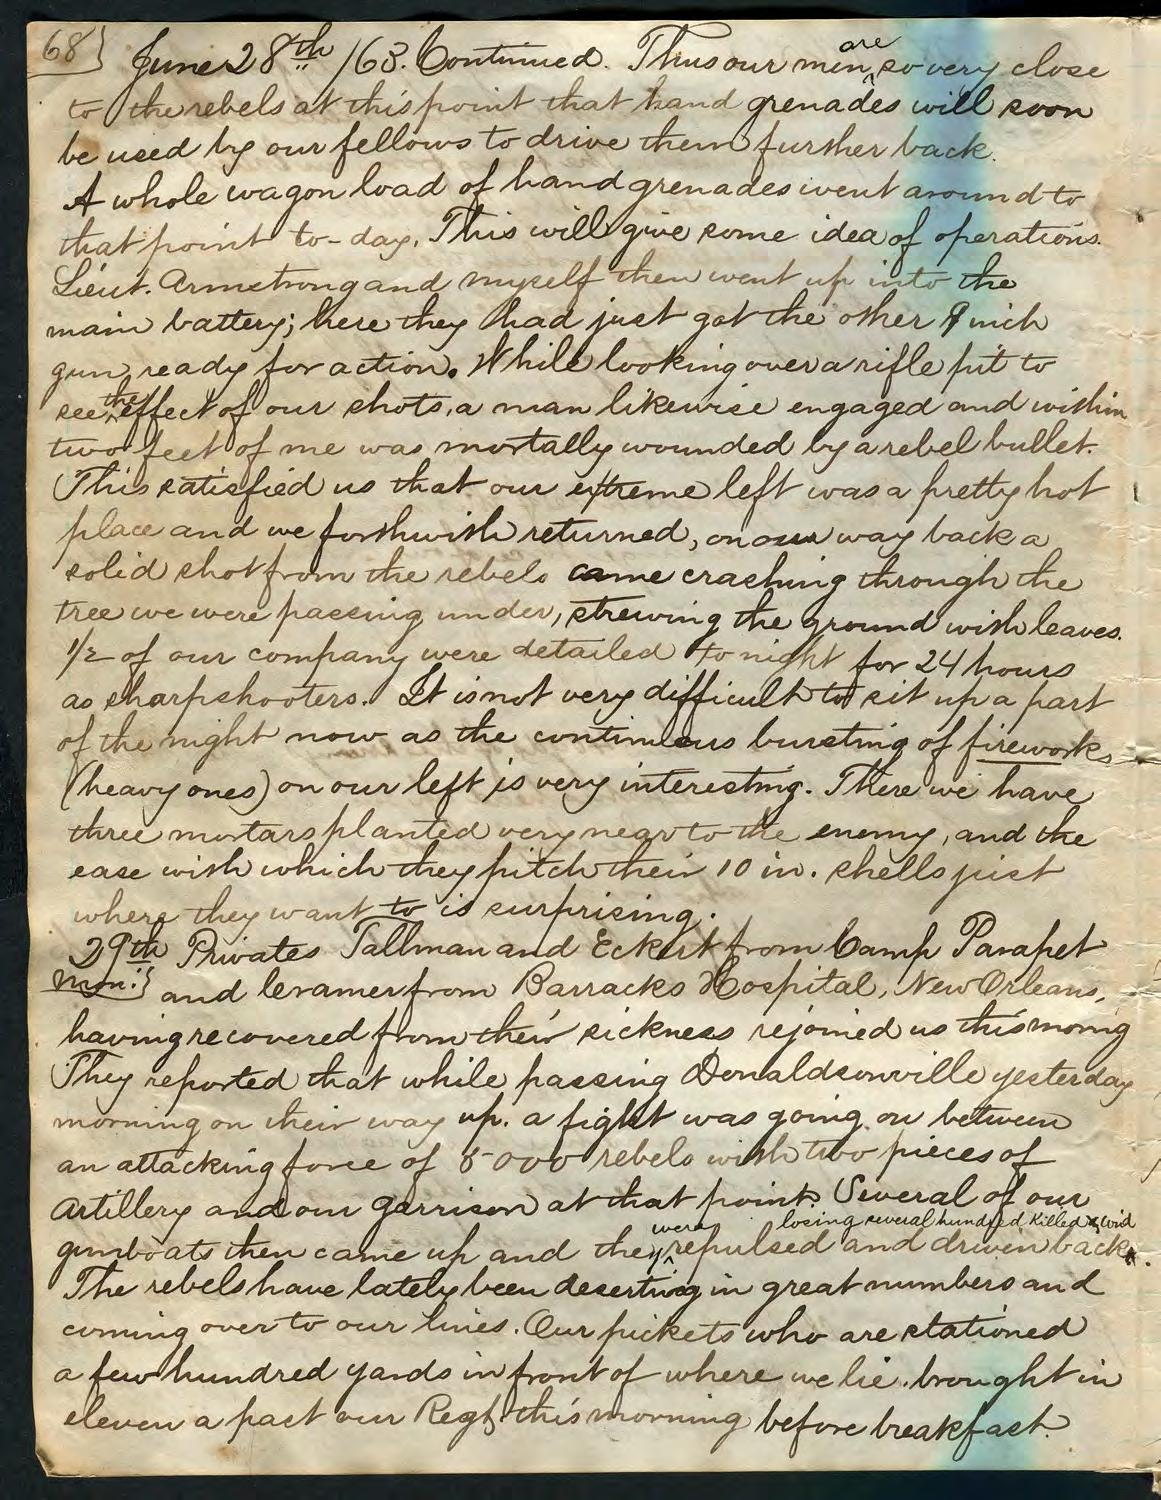 68}
June 28th /63. Continued. Thus our men are so very close
to the rebels at this point that hand grenades will soon
be used by our fellows to drive them further back.
A whole wagon load of hand grenades went around to
that point to-day. This will give some idea of operations.
Lieut. Armstrong and myself then went up into the
main battery; here they had just got the other 9 inch
gun ready for action. While looking over a rifle pit to
see the effect of our shots, a man likewise engaged and within
two feet of me was mortally wounded by a rebel bullet.
This satisfied us that our extreme left was a pretty hot
place and we forthwith returned, on our way back a
solid shot from the rebels came crashing through the
tree we were passing under, strewing the ground with leaves.
1/2 of our company were detailed to night for 24 hours
as sharpshooters. It is not very difficult to sit up a part
of the night now as the continuous bursting of fireworks
(heavy ones) on our left is very interesting. There we have
three mortars planted very near to the enemy, and the
ease with which they pitch their 10 in. shells just
where they want to is surprising.
29th Privates Tallman and Eckert from Camp Parapet
Mon.} and Cramer from Barracks Hospital, New Orleans,
having recovered from their sickness rejoined us this mornig
They reported that while passing Donaldsonville yesterday
morning on their way up. a fight was going on between
an attacking force of 5000 rebels with two pieces of
artillery and our garrison at that point. Several of our
were losing several hundred killed & wd
gunboats then came up and they repulsed and driven back.
The rebels have lately been deserting in great numbers and
coming over to our lines. Our pickets who are stationed
a few hundred yards in front of where we lie. brought in
eleven a past our Regt. this morning before breakfast.